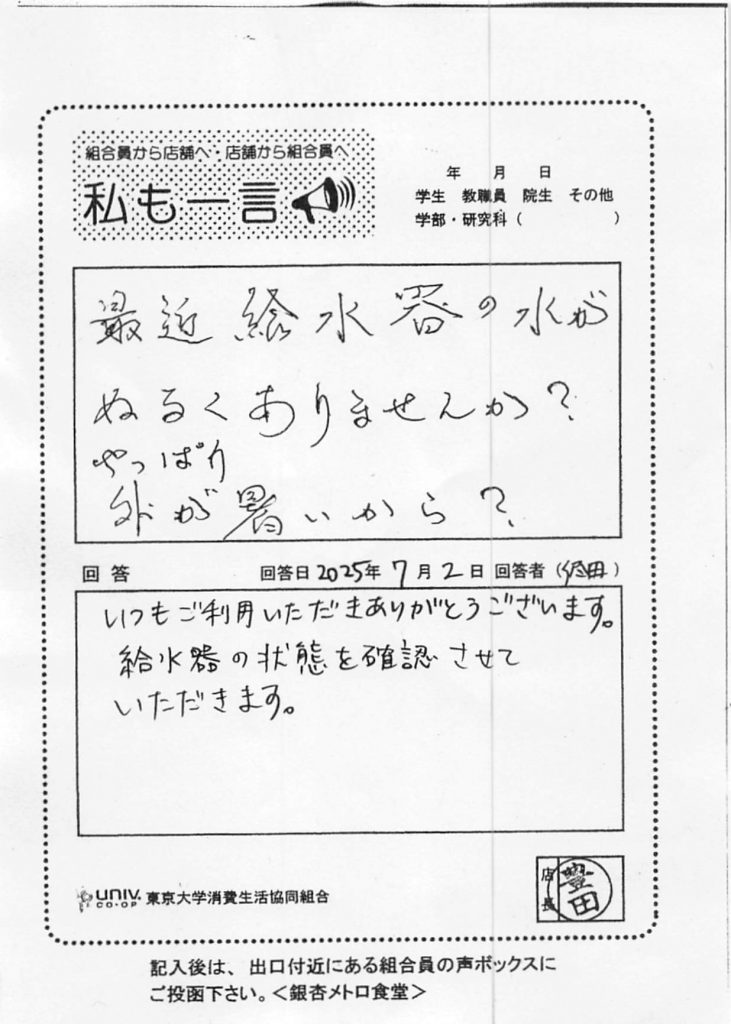 組合員から店舗へ・店舗から組合員へ
私も一言
年 月 日
学生 教職員 院生 その他
学部・研究科( )
最近給水器の水が
ぬるくありませんか?
やっぱり
外が暑いから?
回答 回答日2025年7月2日 回答者( 田)
いつもご利用いただきありがとうございます。
給水器の状態を確認させて
いただきます。
UNIV. CO-OP 東京大学消費生活協同組合
店長 豊田
記入後は、出口付近にある組合員の声ボックスに
ご投函下さい。<銀杏メトロ食堂>